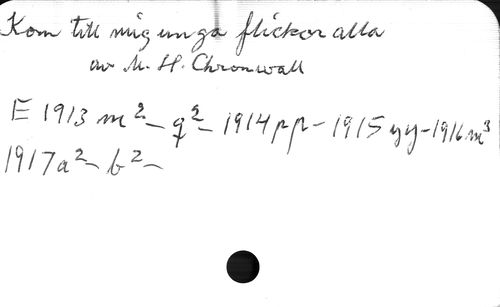 Kom till mig unga flickor alla
av M. H. Chronwall
E 1913 m² – q² – 1914 pp – 1915 yy – 1916 m³
1917 a² – b² –